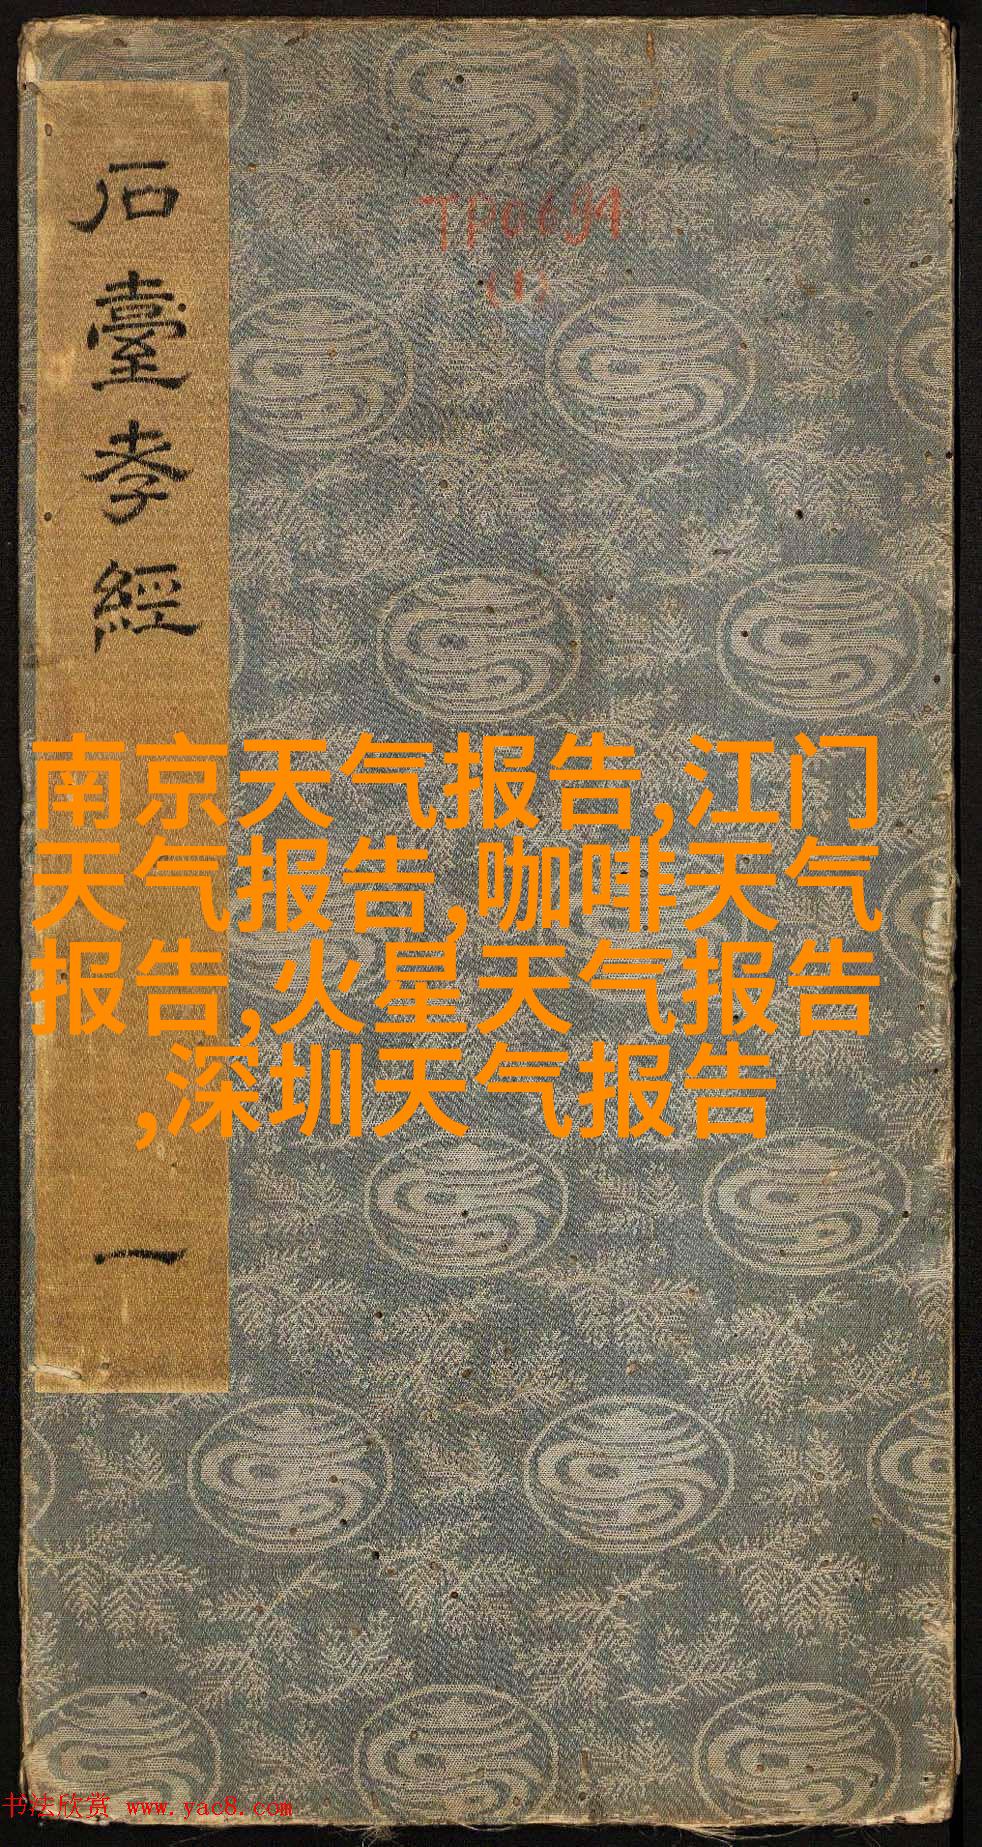 石臺孝經
一
TP0691
(1)
南京天气报告,江门
天气报告,咖啡天气
报告,火星天气报告
,深圳天气报告
书法欣赏 www.yac8.com